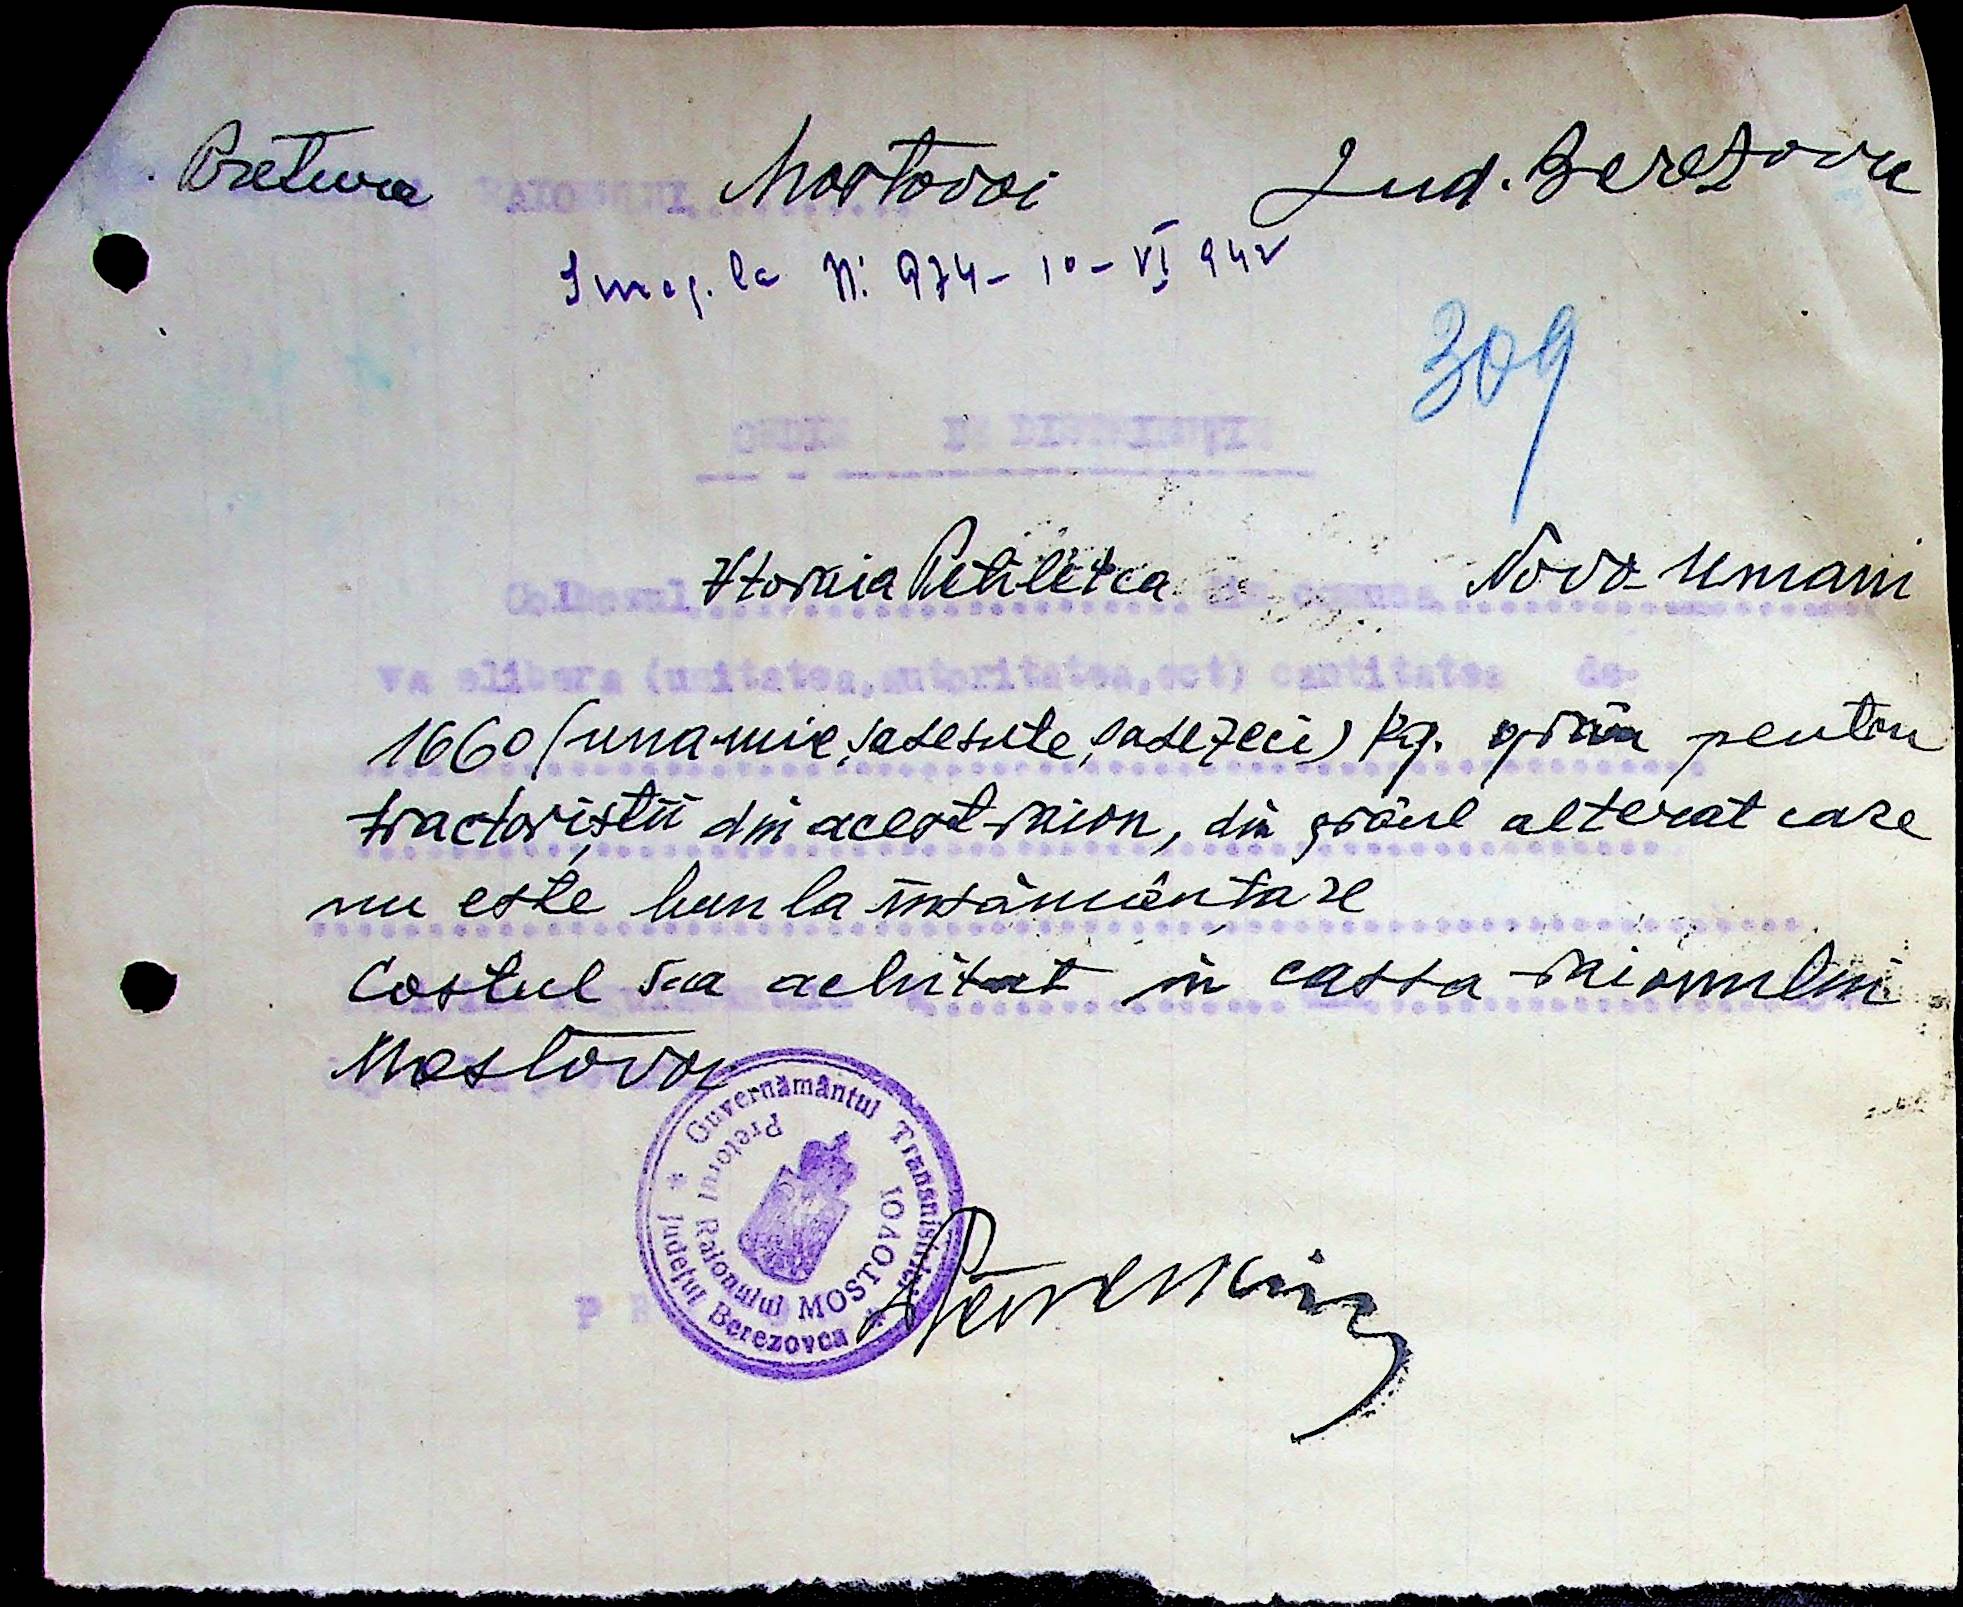 Pretura RAIONULUI Mostovoi Jud. Berezovca
Inreg. la N: 974 - 10 - VI 942
309
ORDIN DE DISTRIBUȚIE
Colhozul Vtoraia Petiletca din comuna Novo-Umani
va elibera (unitatea, autoritatea, ect) cantitatea de-
1660 (una mie, șasesute, șasezeci) kg. grâu pentru
tractoriștii din acest raion, din grâul alterat care
nu este bun la însămânțare
Costul s-a achitat în cassa raionului
Mostovoi
Guvernământul Transnistriei
Pretorul Raionului MOSTOVOI
Județul Berezovca
P